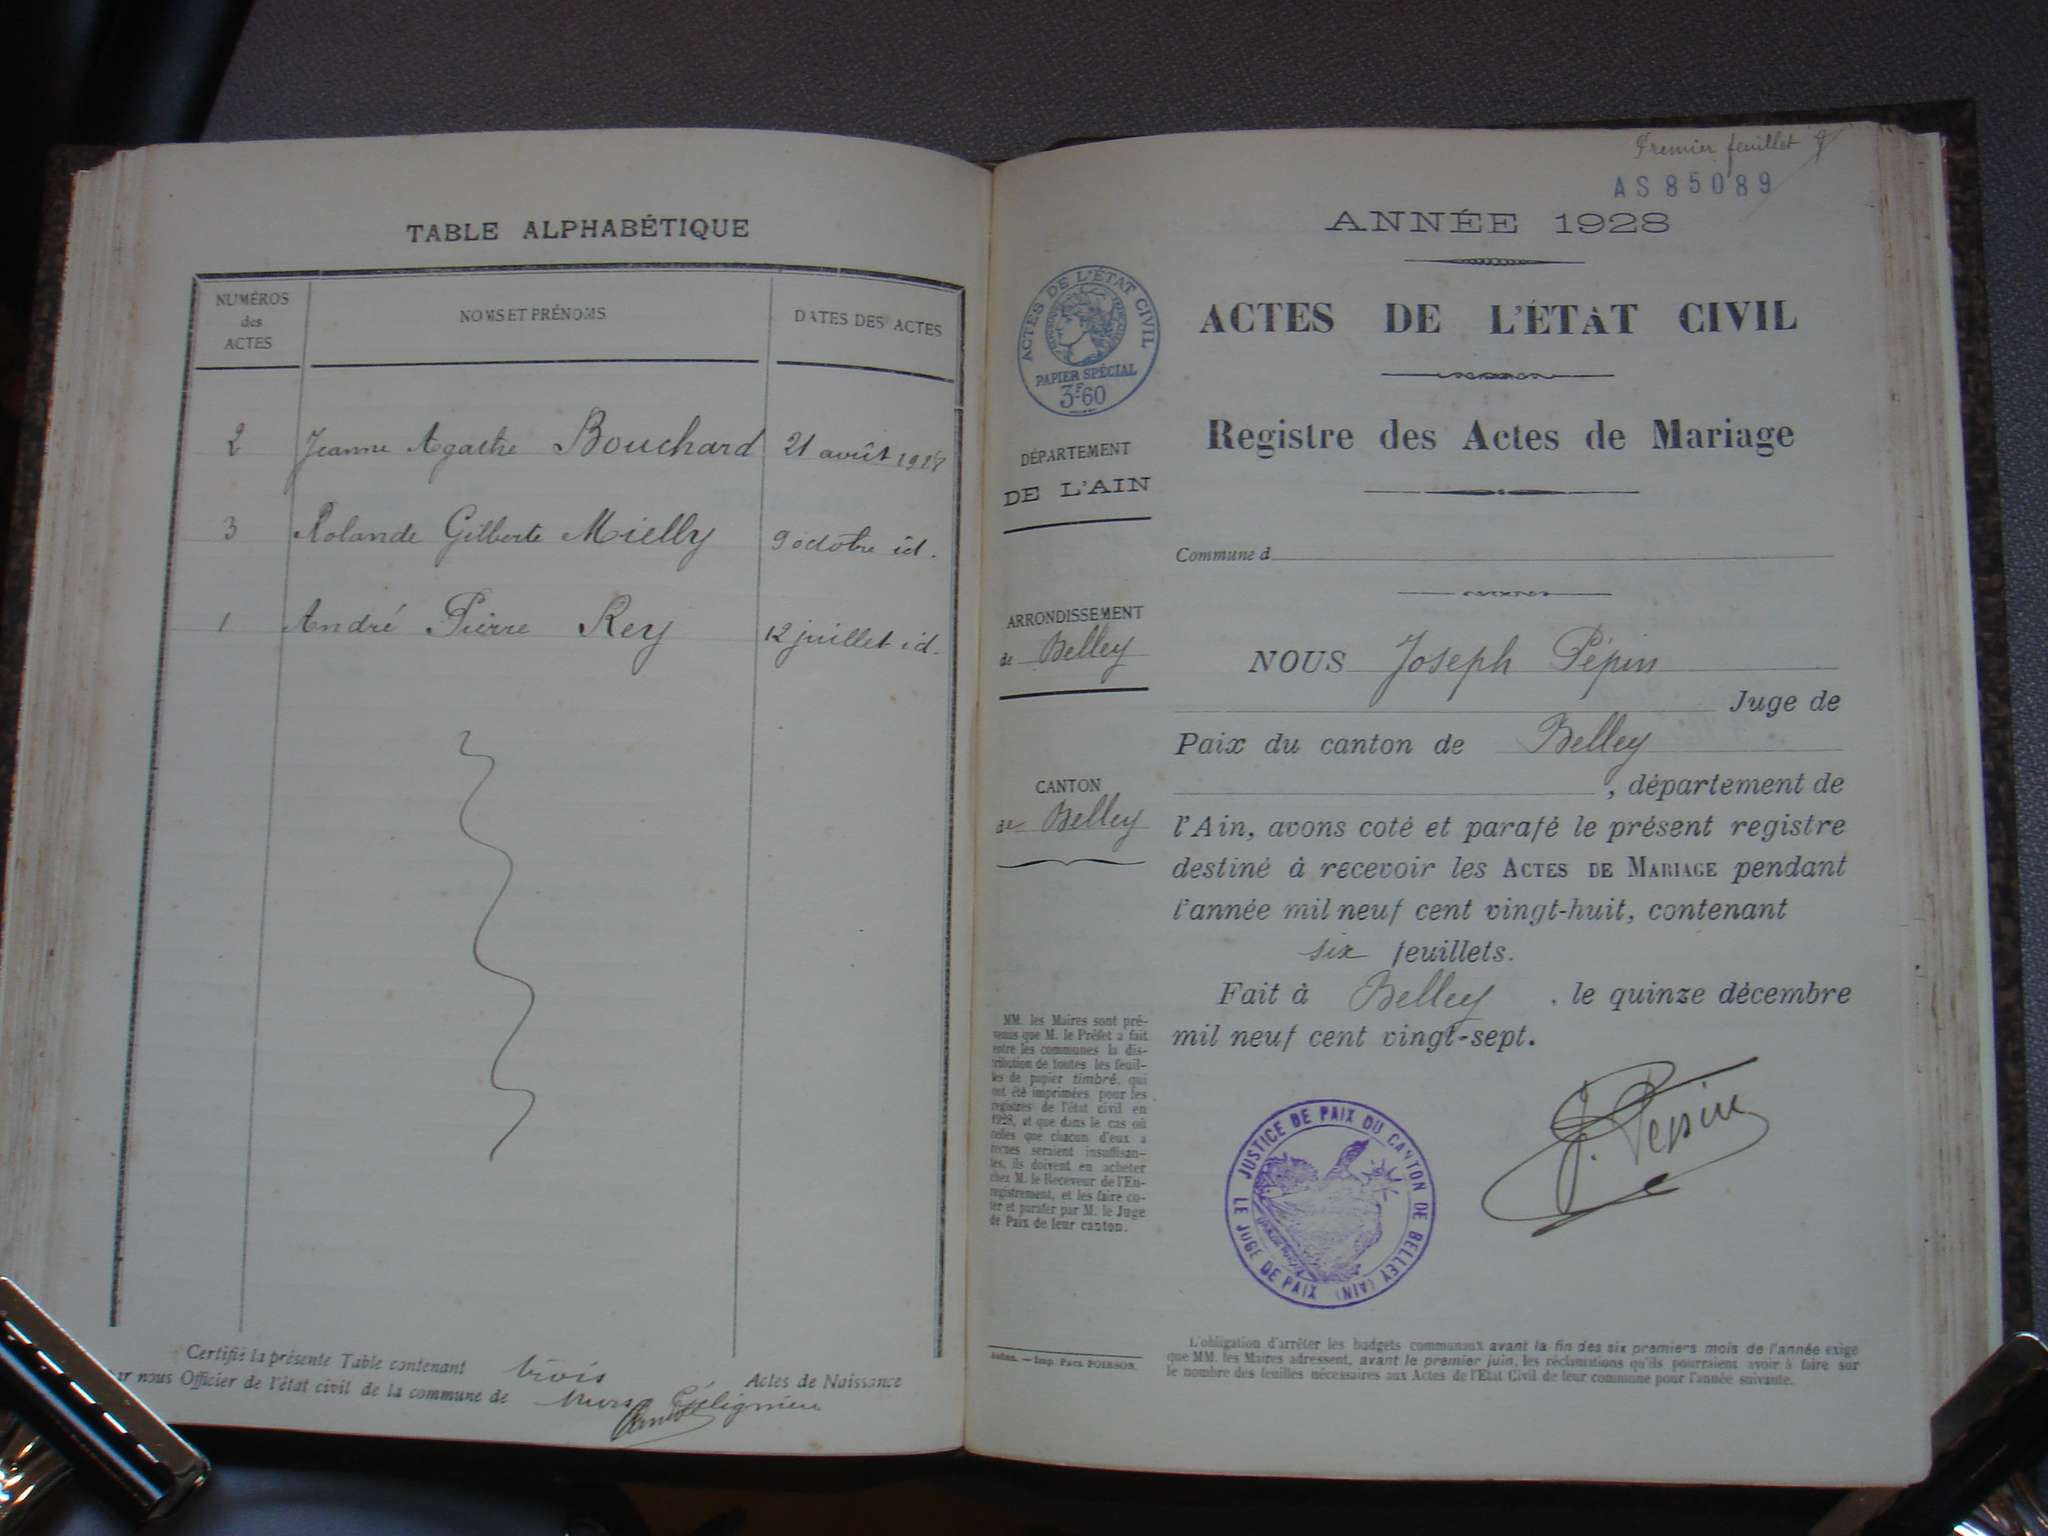 TABLE ALPHABÉTIQUE
NUMÉROS des ACTES
NOMS ET PRÉNOMS
DATES DES ACTES
2 Jeanne Agathe Bouchard 21 août 1928
3 Rolande Gilberte Mielly 9 octobre id.
1 André Pierre Rey 12 juillet id.
Certifié la présente Table contenant trois Actes de Naissance
nous Officier de l'état civil de la commune de Murs Gélignieu
Premier feuillet
AS 85089
ANNÉE 1928
ACTES DE L'ÉTAT CIVIL
Registre des Actes de Mariage
ACTES DE L'ÉTAT CIVIL
PAPIER SPÉCIAL
3F60
DÉPARTEMENT
DE L'AIN
ARRONDISSEMENT
de Belley
CANTON
de Belley
MM. les Maires sont pré-
venus que M. le Préfet a fait
entre les communes la dis-
tribution de toutes les feuil-
les de papier timbré, qui
ont été imprimées pour les
registres de l'état civil en
1928, et que dans le cas où
celles que chacun d'eux a
reçues seraient insuffisan-
tes, ils doivent en acheter
chez M. le Receveur de l'En-
registrement, et les faire co-
ter et parafer par M. le Juge
de Paix de leur canton.
Imp. Paul POIRSON.
Commune d
NOUS Joseph Pépin
Juge de
Paix du canton de Belley
, département de
l'Ain, avons coté et parafé le présent registre
destiné à recevoir les ACTES DE MARIAGE pendant
l'année mil neuf cent vingt-huit, contenant
six feuillets.
Fait à Belley , le quinze décembre
mil neuf cent vingt-sept.
J. Pépin
JUSTICE DE PAIX DU CANTON DE BELLEY (AIN)
LE JUGE DE PAIX
L'obligation d'arrêter les budgets communaux avant la fin des six premiers mois de l'année exige
que MM. les Maires adressent, avant le premier juin, les réclamations qu'ils pourraient avoir à faire sur
le nombre des feuilles nécessaires aux Actes de l'Etat Civil de leur commune pour l'année suivante.